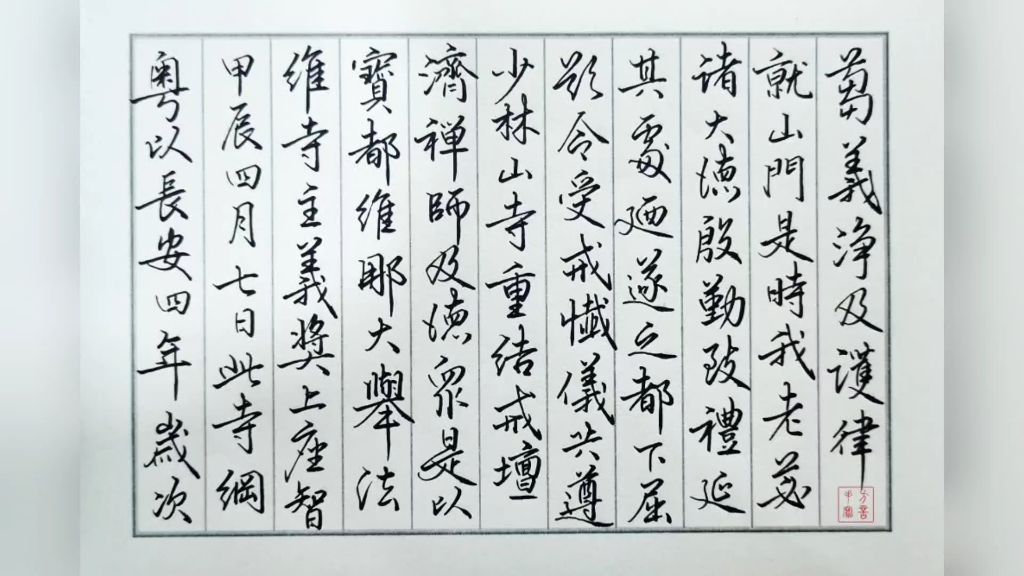 粤以長安四年歲次
甲辰四月七日此寺綱
維寺主義獎上座智
寶都維那大舉法
濟禅師及徳眾是以
少林山寺重結戒壇
欲令受戒懺儀共遵
其處廼遂之都下屈
諸大徳殷勤致禮延
就山門是時我老苾
蒭義浄及護律